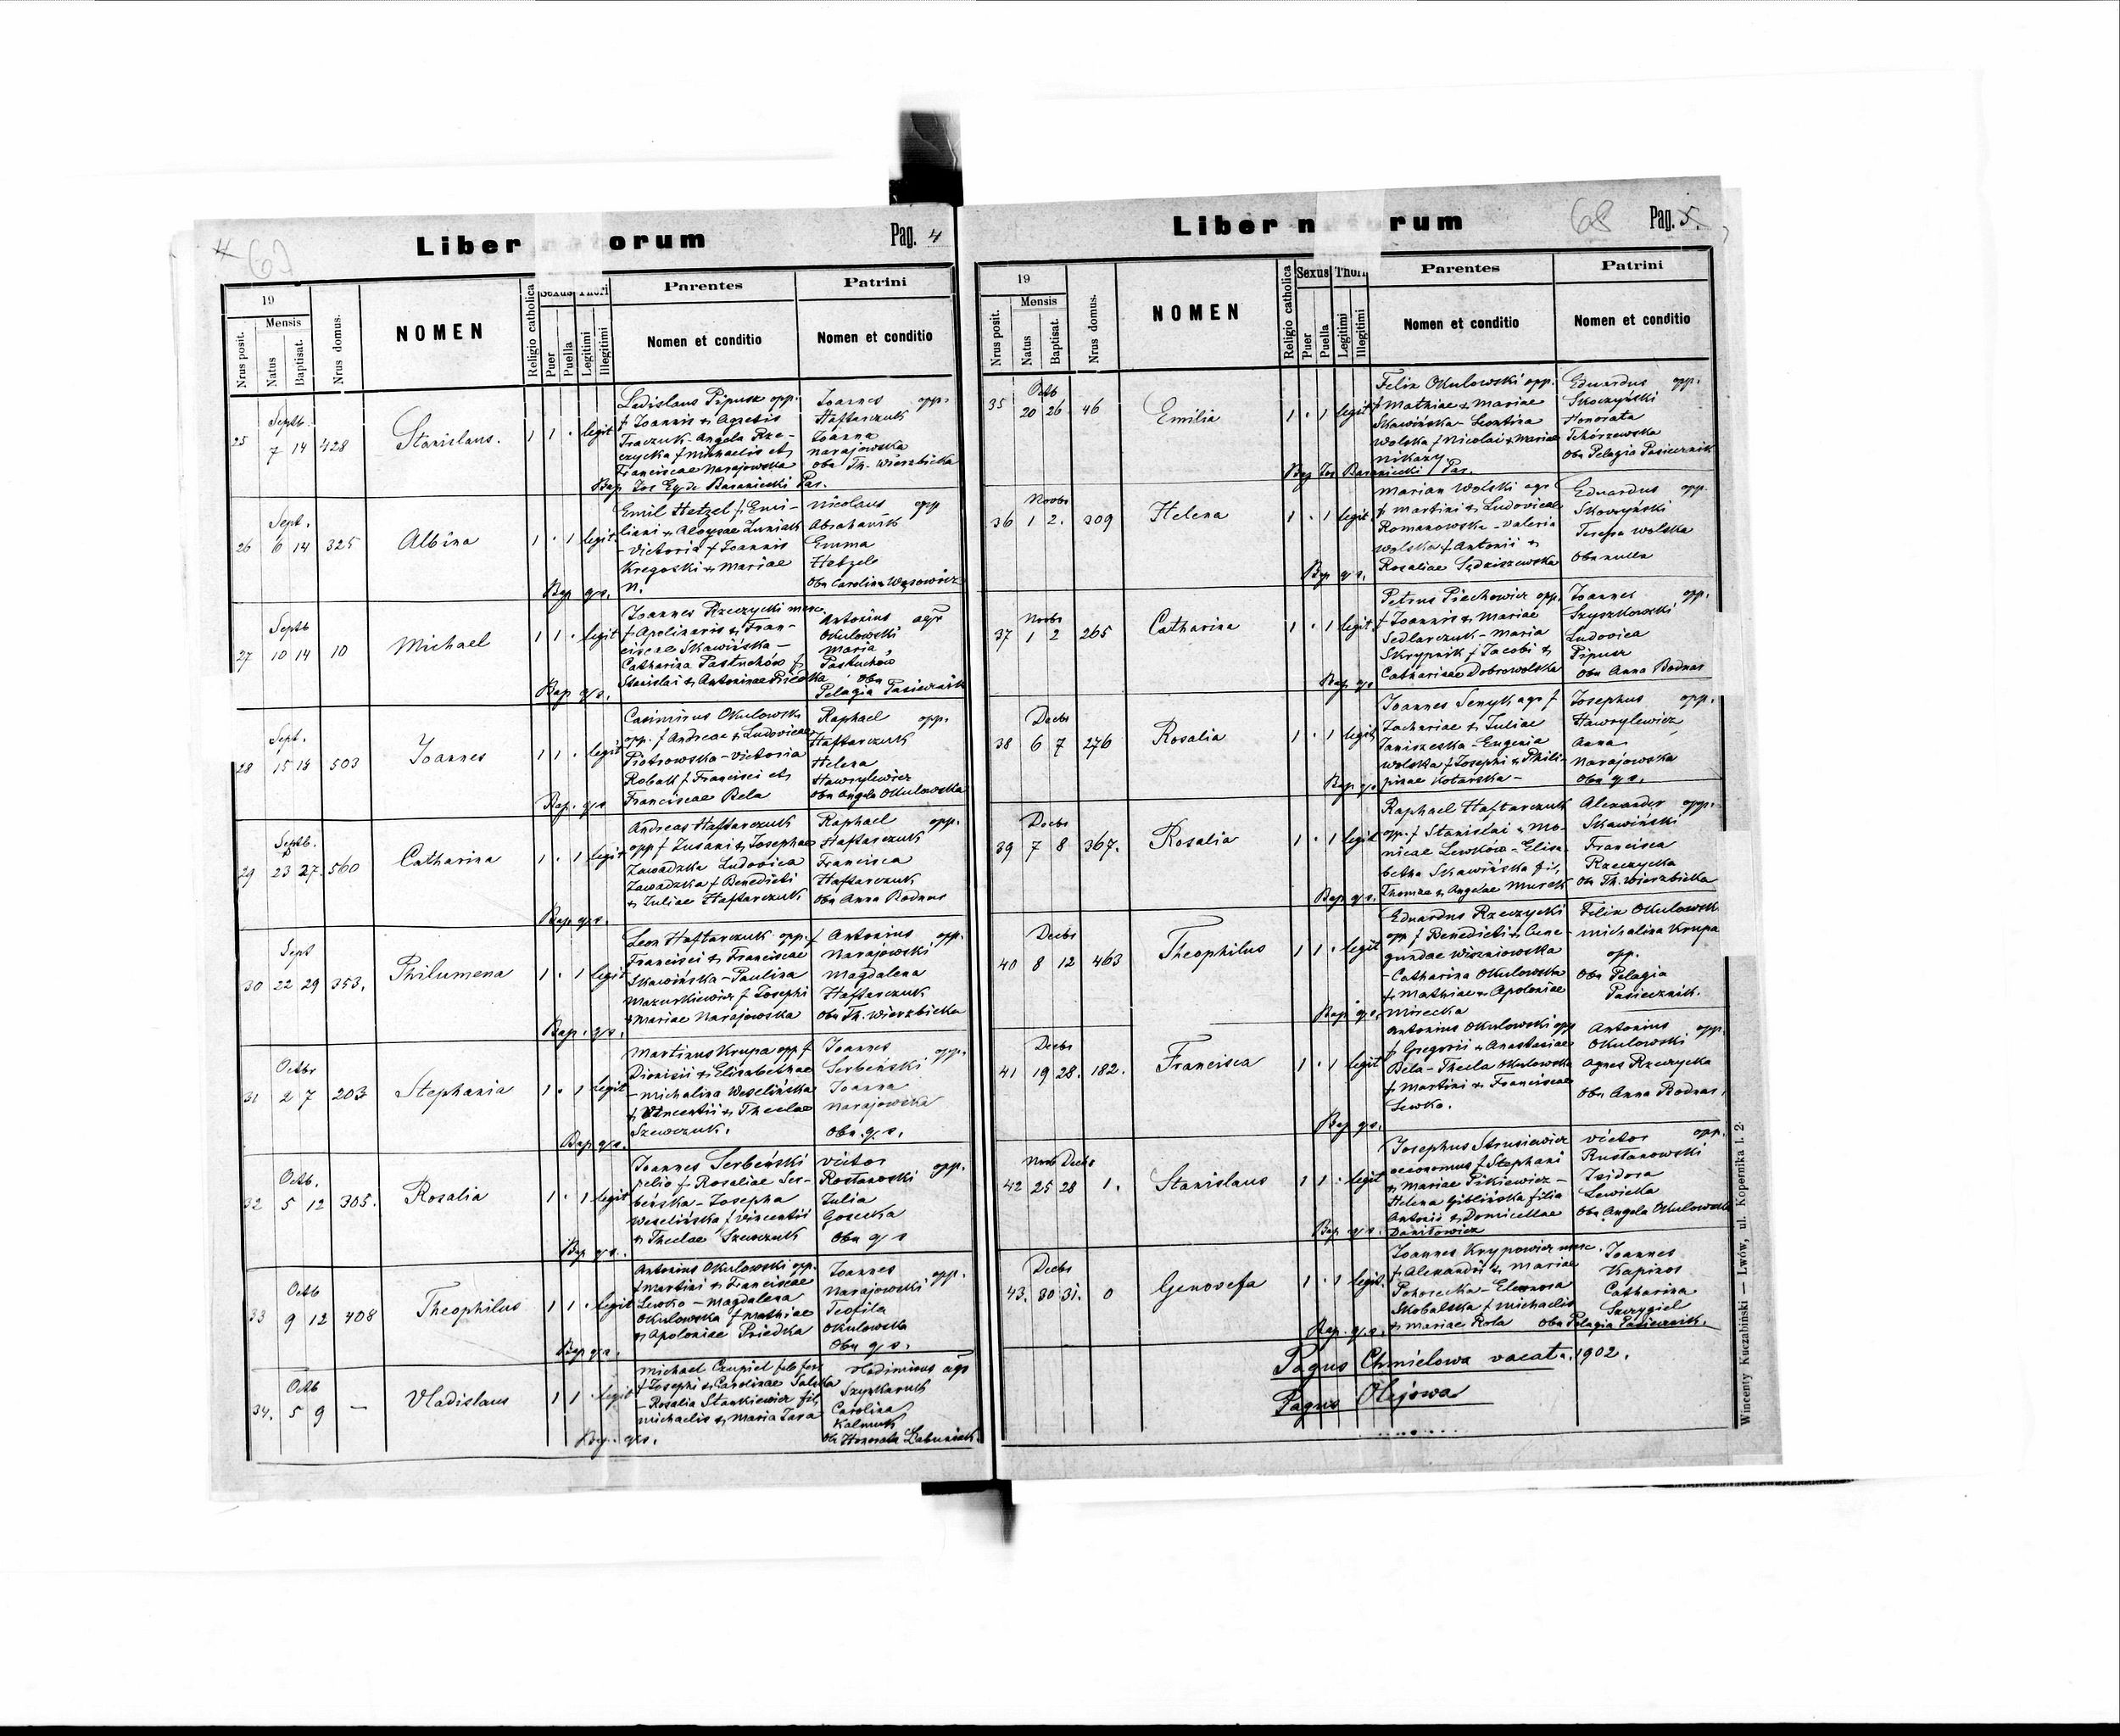 4 67
Liber natorum Pag. 4
19
Nrus posit. Mensis Natus Baptisat. Nrus domus. NOMEN Religio catholica Sexus Puer Puella Thori Legitimi Illegitimi Parentes Nomen et conditio Patrini Nomen et conditio
25 Septb. 7 14 428 Stanislaus. 1 1 . legit
Ladislaus Pipusz opp.
f Joannis & Agnetis
Traczuk - Angela Rze-
czycka f Michaelis et
Franciscae Narajowska
Joannes opp.
Haftarczuk
Joanna
Narajowska
Obu Th. Wierzbicka
Bap Jos Eq de Baraniecki Par.
26 Sept. 6 14 325 Albina 1 . 1 legit
Emil Hetzel f Emi-
liani & Aloysae Zuniak
- Victoria f Joannis
Kregoski & Mariae
N.
Nicolaus opp
Abrahamik
Emma
Hetzel
Obu Carolina Wąsowicz
Bap q/s.
27 Septb 10 14 10 Michael 1 1 . legit
Joannes Rzeczycki merc.
f Apolinaris & Fran-
ciscae Skawińska -
Catharina Pastuchów f
Stanislai & Antoninae Priedka
Antonius agr
Okulowski
Maria
Pastuchów
Obu
Pelagia Pasiecznik
Bap q/s.
28 Sept. 15 18 503 Joannes 1 1 . legit
Casimirus Okulowski
opp. f Andreae & Ludovicae
Piotrowska - Victoria
Robak f Francisci et
Franciscae Bela
Raphael opp.
Haftarczuk
Helena
Hawrylewicz
Obu Angela Okulowska
Bap. q/s
29 Septb. 23 27. 560 Catharina 1 . 1 legit
Andreas Haftarczuk
opp f Susani & Josephae
Zawadzka Ludovica
Zawadzka f Benedicti
& Juliae Haftarczuk
Raphael opp.
Haftarczuk
Francisca
Haftarczuk
Obu Anna Bodnar
Bap q/s.
30 Sept 22 29 353. Philumena 1 . 1 legit
Leon Haftarczuk opp. f
Francisci & Franciscae
Skawińska - Paulina
Mazurkiewicz f Josephi
& Mariae Narajowska
Antonius opp.
Narajowski
Magdalena
Haftarczuk
Obu Th. Wierzbicka
Bap. q/s.
31 Octbr 2 7 203 Stephania 1 . 1 legit
Martinus Krupa opp f
Dionisii & Elisabethae
- Michalina Weselińska
f Vincentii & Theclae
Szewczuk.
Joannes opp.
Serbeński
Joanna
Narajowska
Obu q. s.
Bap q/s.
32 Octb. 5 12 305. Rosalia 1 . 1 legit
Joannes Serbeński
pelio f Rosaliae Ser-
beńska - Josepha
Weselińska f Vincentii
& Theclae Szewczuk
Victor opp.
Rostanoski
Julia
Gosecka
Obu q/s
Bap q/s.
33 Octb 9 12 408 Theophilus 1 1 . legit
Antonius Okulowski opp.
f Martini & Franciscae
Lewko - Magdalena
Okulowska f Mathiae
& Apoloniae Priedka
Joannes opp.
Narajowski
Teofila
Okulowska
Obu q/s.
Bap q/s.
34. Octb 5 9 — Vladislaus 1 1 . legit
Michael Czupiel
f Josephi & Carolinae
- Rosalia Stankiewicz fil,
Michaelis & Maria Zara
Vladimirus agr
Szynkaruk
Carolina
Kalmuk
Ob Honorata Labuniak.
Bap. q/s.
Liber natorum 68 Pag. 5.
19
Nrus posit. Mensis Natus Baptisat. Nrus domus. NOMEN Religio catholica Sexus Puer Puella Thori Legitimi Illegitimi Parentes Nomen et conditio Patrini Nomen et conditio
35 Octb 20 26 46 Emilia 1 . 1 legit
Felix Okulowski opp.
f Mathiae & Mariae
Skawińska - Leontina
Wolska f Nicolai & Mariae
Nikazy.
Eduardus opp.
Skoczyński
Honorata
Tchórzewska
Obu Pelagia Pasiecznik
Bap Jos Baraniecki Par.
36 Novbr 1 2. 309 Helena 1 . 1 legit
Marian Wolski agr
f Martini & Ludovicae
Romanowska - Valeria
Wolska f Antonii &
Rosaliae Sędziszewska
Eduardus opp.
Skoczyński
Teresa Wolska
Obu nulla
Bap q/s.
37 Novbr 1 2 265 Catharina 1 . 1 legit
Petrus Piechowicz opp.
f Joannis & Mariae
Sedlarczuk - Maria
Skrypnik f Jacobi &
Catharinae Dobrowolska
Joannes opp.
Szyszkowski
Ludovica
Pipusz
Obu Anna Bodnar
Bap q/s
38 Decbr 6 7 276 Rosalia 1 . 1 legit
Joannes Senyk agr f
Zachariae & Juliae
Janiszeska - Eugenia
Wolska f Josephi & Phili-
pinae Kotarska -
Josephus opp.
Hawrylewicz
Anna
Narajowska
Obu q/s.
Bap q/s
39 Decbr 7 8 367. Rosalia 1 . 1 legit
Raphael Haftarczuk
opp. f Stanislai & Mo-
nicae Lewków - Elisa-
betha Skawińska fil,
Thomae & Angelae Murek
Alexander opp.
Skawiński
Francisca
Rzeczycka
Ob Th. Wierzbicka
Bap q/s.
40 Decbr 8 12 463 Theophilus 1 1 . legit
Eduardus Rzeczycki
opp f Benedicti & Cune-
gundae Wiszniowska
- Catharina Okulowska
f Mathiae & Apoloniae
Mirecka
Felix Okulowski
Michalina Krupa
opp.
Obu Pelagia
Pasiecznik.
Bap q/s.
41 Decbr 19 28. 182. Francisca 1 . 1 legit
Antonius Okulowski opp
f Gregorii & Anastasiae
Bela - Thecla Okulowska
f Martini & Franciscae
Lewko.
Antonius opp.
Okulowski
Agnes Rzeczycka
Obu Anna Bodnar,
Bap q/s.
42 Novb Decbr 25 28 1. Stanislaus 1 1 . legit
Josephus Strusiewicz
oeconomus f Stephani
& Mariae Pikiewicz -
Helena Giblińska filia
Antonii & Domicellae
Daniłowicz
Victor opp.
Rustanowski
Isidora
Lewicka
Obu Angela Okulowska
Bap q/s.
43. Decbr 30 31. 0 Genovefa 1 . 1 legit.
Joannes Krypowicz merc.
f Alexandri & Mariae
Pohorecka - Eleonora
Skobalska f Michaelis
& Mariae Rola
Joannes
Kapinos
Catharina
Szczygieł
Obu Pelagia Pasiecznik.
Bap. q/s.
Pagus Chmielowa vacat a. 1902.
Pagus Olejowa
Wincenty Kuczabiński — Lwów, ul. Kopernika l. 2.